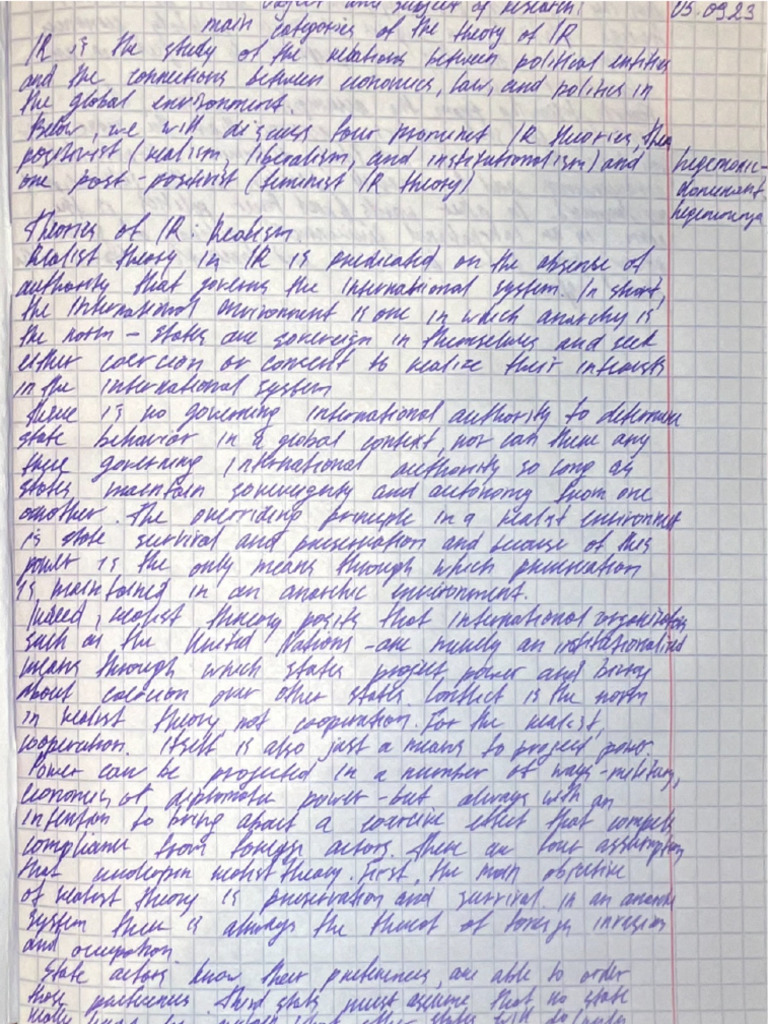 object and subject of research
05.09.23
main categories of the theory of IR
IR is the study of the relations between political entities
and the connections between economics, law, and politics in
the global environment.
Below, we will discuss four prominent IR theories, three
positivist (realism, liberalism, and institutionalism) and
hegemonic-
one post-positivist (feminist IR theory)
dominant
hegemoniya
Theories of IR: Realism
Realist theory in IR is predicated on the absence of
authority that governs the international system. In short,
the international environment is one in which anarchy is
the norm - states are sovereign in themselves and seek
either coercion or consent to realize their interests
in the international system
there is no governing international authority to determine
state behavior in a global context, nor can there any
there governing international authority so long as
states maintain sovereignty and autonomy from one
another. The overriding principle in a realist environment
is state survival and preservation and because of this
power is the only means through which preservation
is maintained in an anarchic environment.
Indeed, realist theory posits that international organizations,
such as the United Nations - are merely an institutionalized
means through which states project power and bring
about coercion over other states. Conflict is the norm
in realist theory not cooperation. For the realist,
cooperation. Itself is also just a means to project power.
Power can be projected in a number of ways - military,
economic or diplomatic power - but always with an
intention to bring about a coercive effect that compels
compliance from foreign actors. There are four assumptions
that underpin realist theory. First, the main objective
of realist theory is preservation and survival in an anarchic
system there is always the threat of foreign invasion
and occupation
State actors know their preferences, are able to order
those preferences. Third state must assume that no state
that other states will